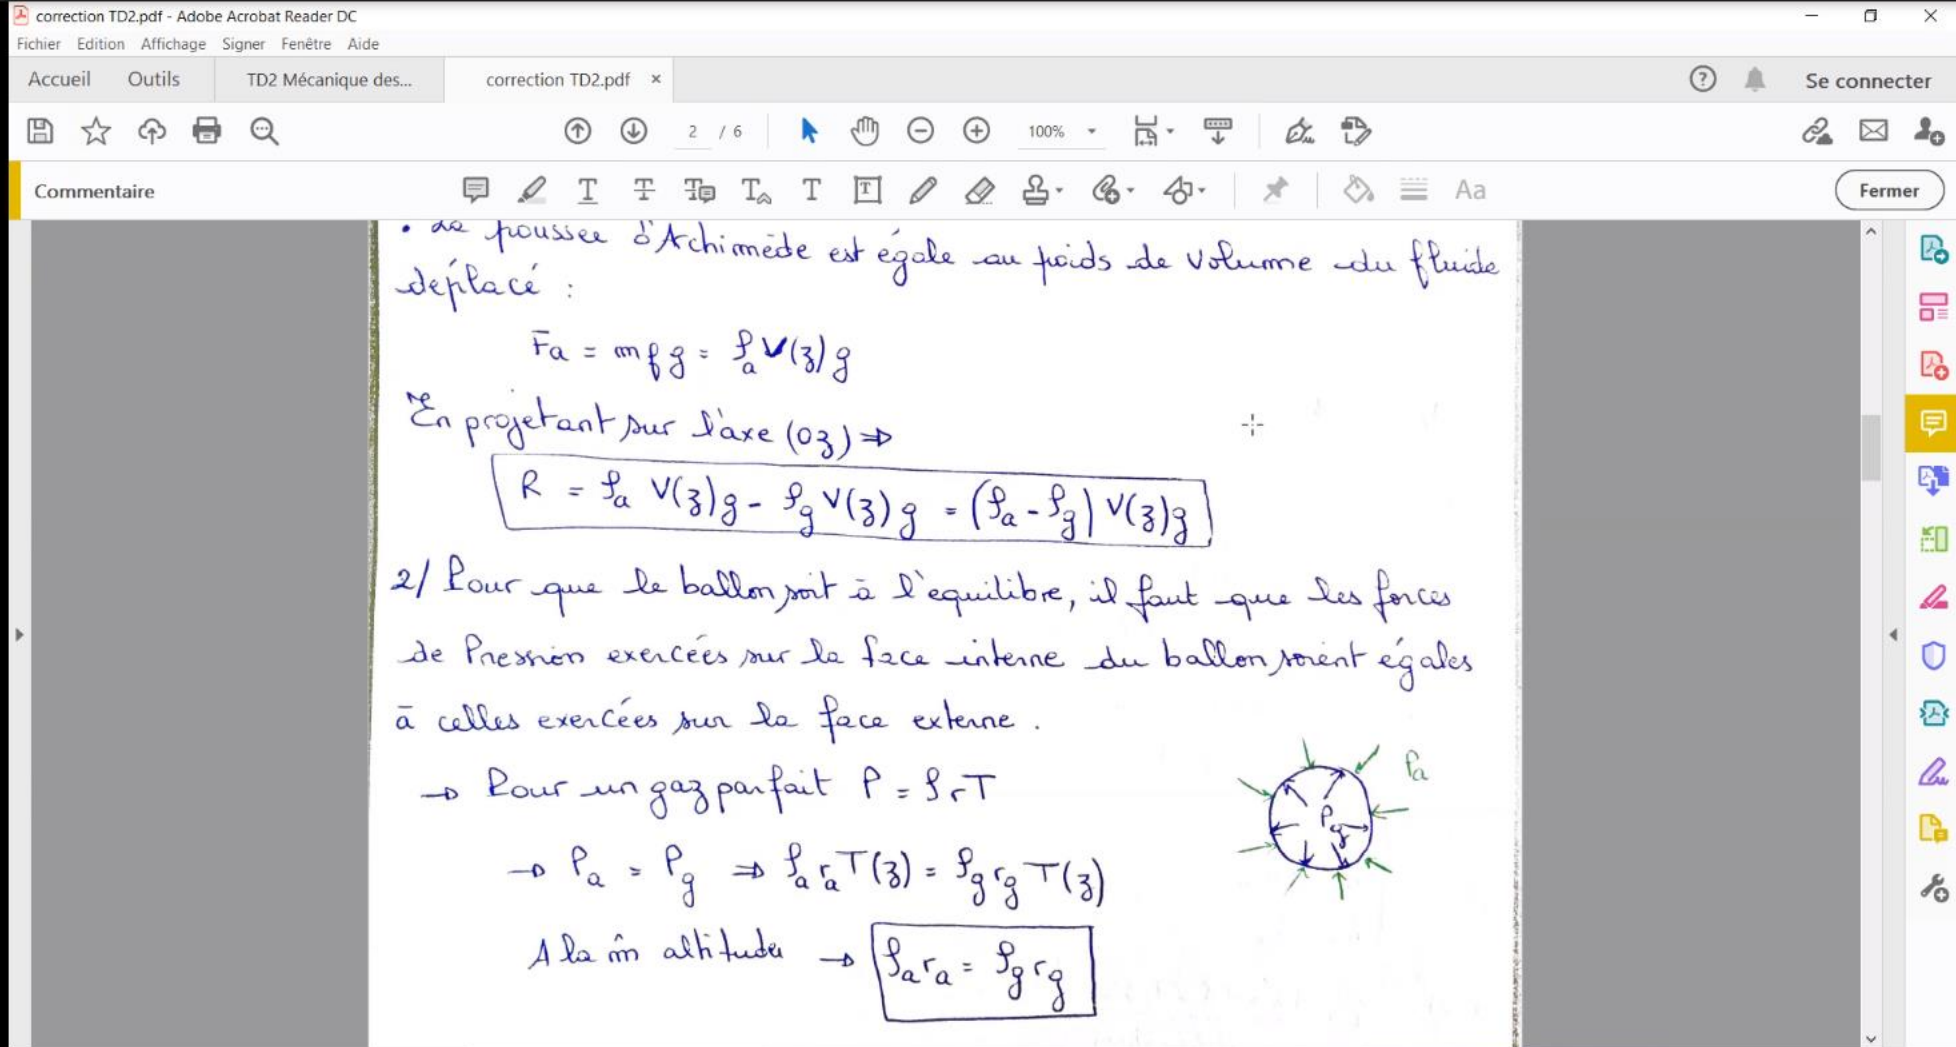 correction TD2.pdf - Adobe Acrobat Reader DC
Fichier Edition Affichage Signer Fenêtre Aide
Accueil Outils TD2 Mécanique des... correction TD2.pdf × Se connecter
2 / 6 100%
Commentaire Aa Fermer
• La poussée d'Achimède est égale au poids de volume du fluide
déplacé :
Fa = mf g = ρa V(z) g
En projetant sur l'axe (Oz) ⇒
R = ρa V(z) g - ρg V(z) g = (ρa - ρg) V(z) g
2/ Pour que le ballon soit à l'équilibre, il faut que les forces
de Pression exercées sur la face interne du ballon soient égales
à celles exercées sur la face externe .
→ Pour un gaz parfait P = ρ r T
Pa
Pg
→ Pa = Pg ⇒ ρa ra T(z) = ρg rg T(z)
A la m̂ altitude → ρa ra = ρg rg